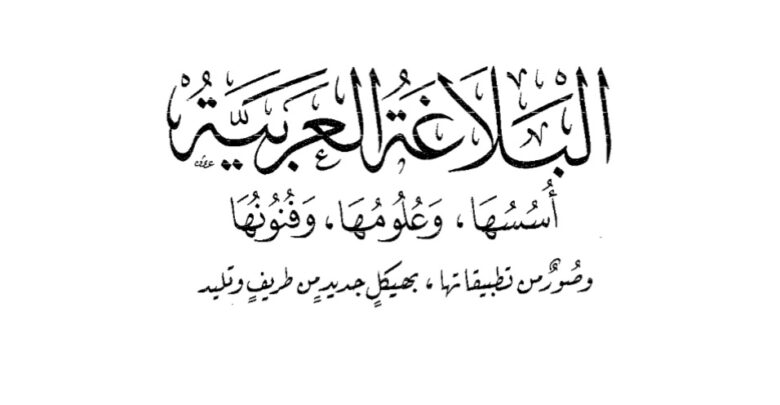 البَلَاغَةُ العَرَبِيَّةُ
أُسُسُهَا، وَعُلُومُهَا، وَفُنُونُهَا
وصُوَرٌ من تطبيقاتها، بهيكلٍ جديدٍ من طريفٍ وتليد